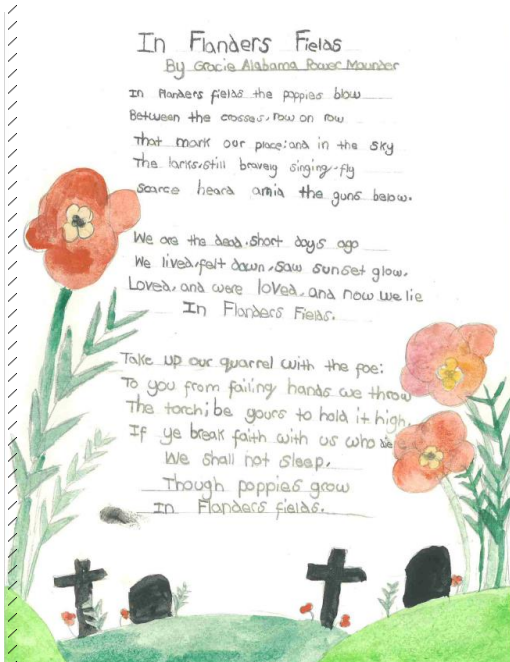 In Flanders Fields
By Gracie Alabama Power Maunder
In Flanders fields the poppies blow
Between the crosses, row on row
That mark our place: and in the sky
The larks, still bravely singing, fly
scarce heard amid the guns below.
We are the dead. short days ago
We lived, felt dawn, saw sunset glow,
Loved, and were loved, and now we lie
In Flanders Fields.
Take up our quarrel with the foe:
To you from failing hands we throw
The torch; be yours to hold it high,
If ye break faith with us who die
We shall not sleep,
Though poppies grow
In Flanders fields.